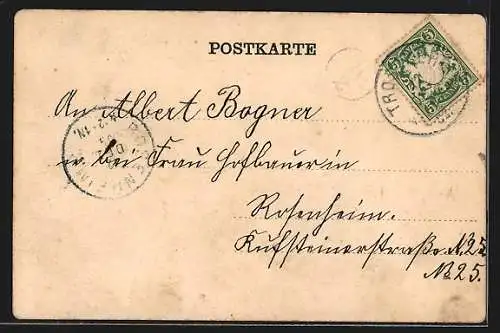 POSTKARTE
5 5
5 5
TRO
An Albert Bogner
ROSENHEIM
w. bei Frau Hofbauer in
Rosenheim.
Kufsteinerstraße N. 25
No. 25.